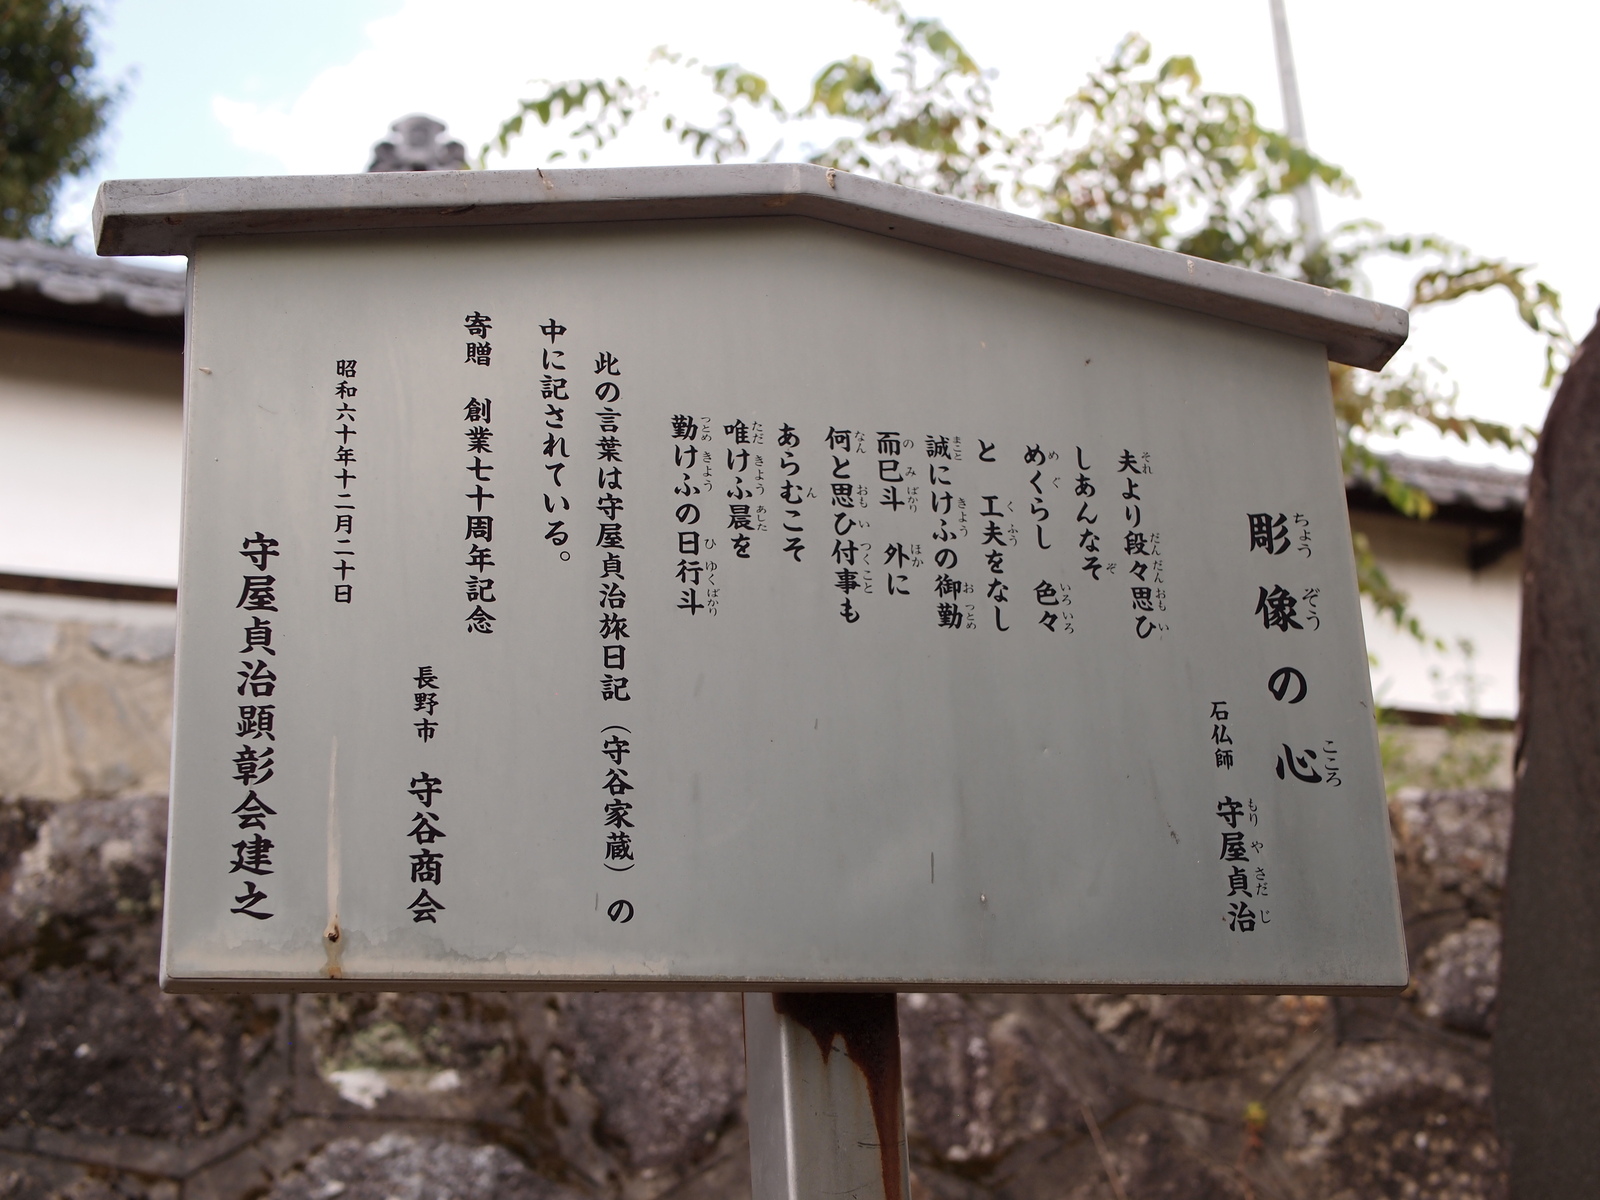 彫像の心
石仏師 守屋貞治
夫より段々思ひ
しあんなそ
めくらし 色々
と 工夫をなし
誠にけふの御勤
而巳斗 外に
何と思ひ付事も
あらむこそ
唯けふ晨を
勤けふの日行斗
此の言葉は守屋貞治旅日記（守谷家蔵）の
中に記されている。
寄贈 創業七十周年記念
長野市 守谷商会
昭和六十年十二月二十日
守屋貞治顕彰会建之